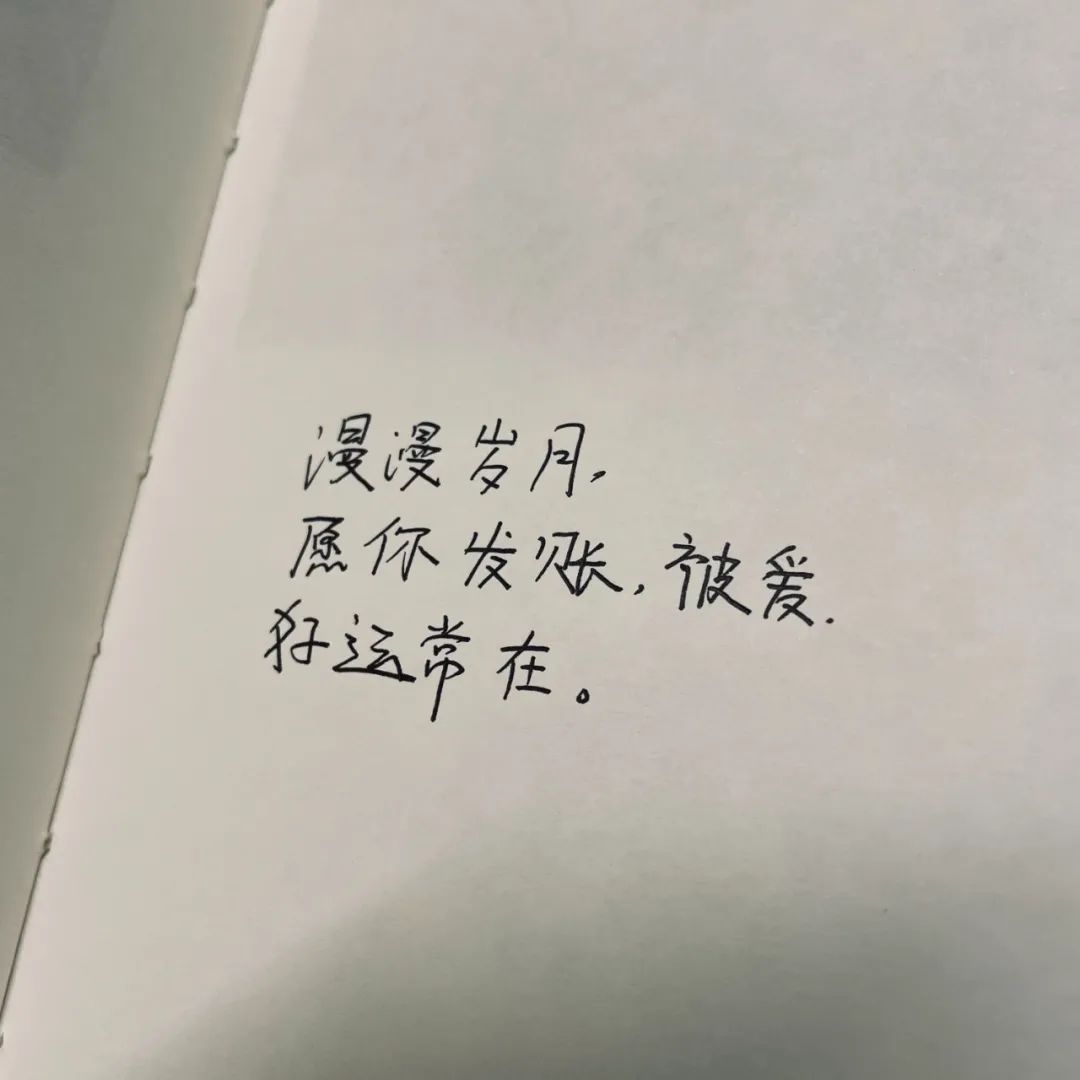 漫漫岁月，
愿你发财，被爱.
好运常在。